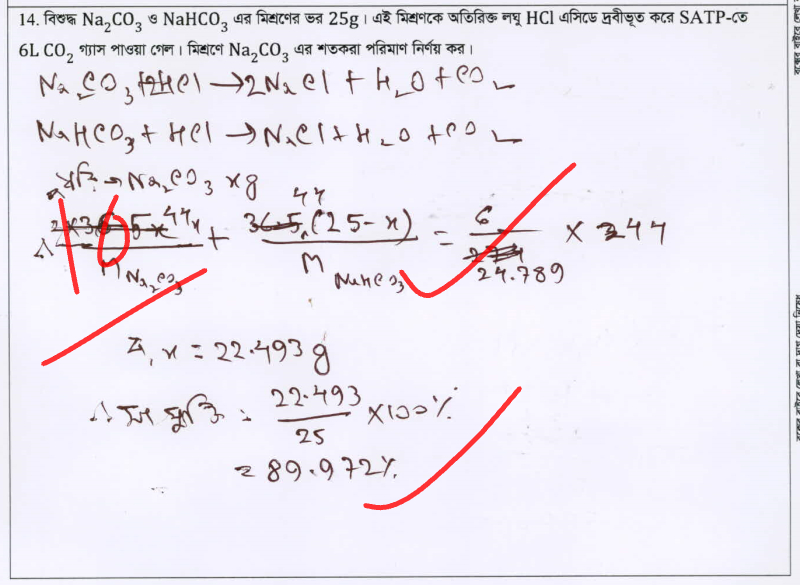 14. বিশুদ্ধ Na₂CO₃ ও NaHCO₃ এর মিশ্রণের ভর 25g। এই মিশ্রণকে অতিরিক্ত লঘু HCl এসিডে দ্রবীভূত করে SATP-তে
6L CO₂ গ্যাস পাওয়া গেল। মিশ্রণে Na₂CO₃ এর শতকরা পরিমাণ নির্ণয় কর।
Na₂CO₃+2HCl → 2NaCl + H₂O + CO₂
NaHCO₃ + HCl → NaCl + H₂O + CO₂
ধরি → Na₂CO₃ x g
44x / M Na₂CO₃ + 44(25-x) / M NaHCO₃ = 6 / 24.789 × 44
10
বা, x = 22.493 g
22.493 / 25 × 100%
= 89.972%